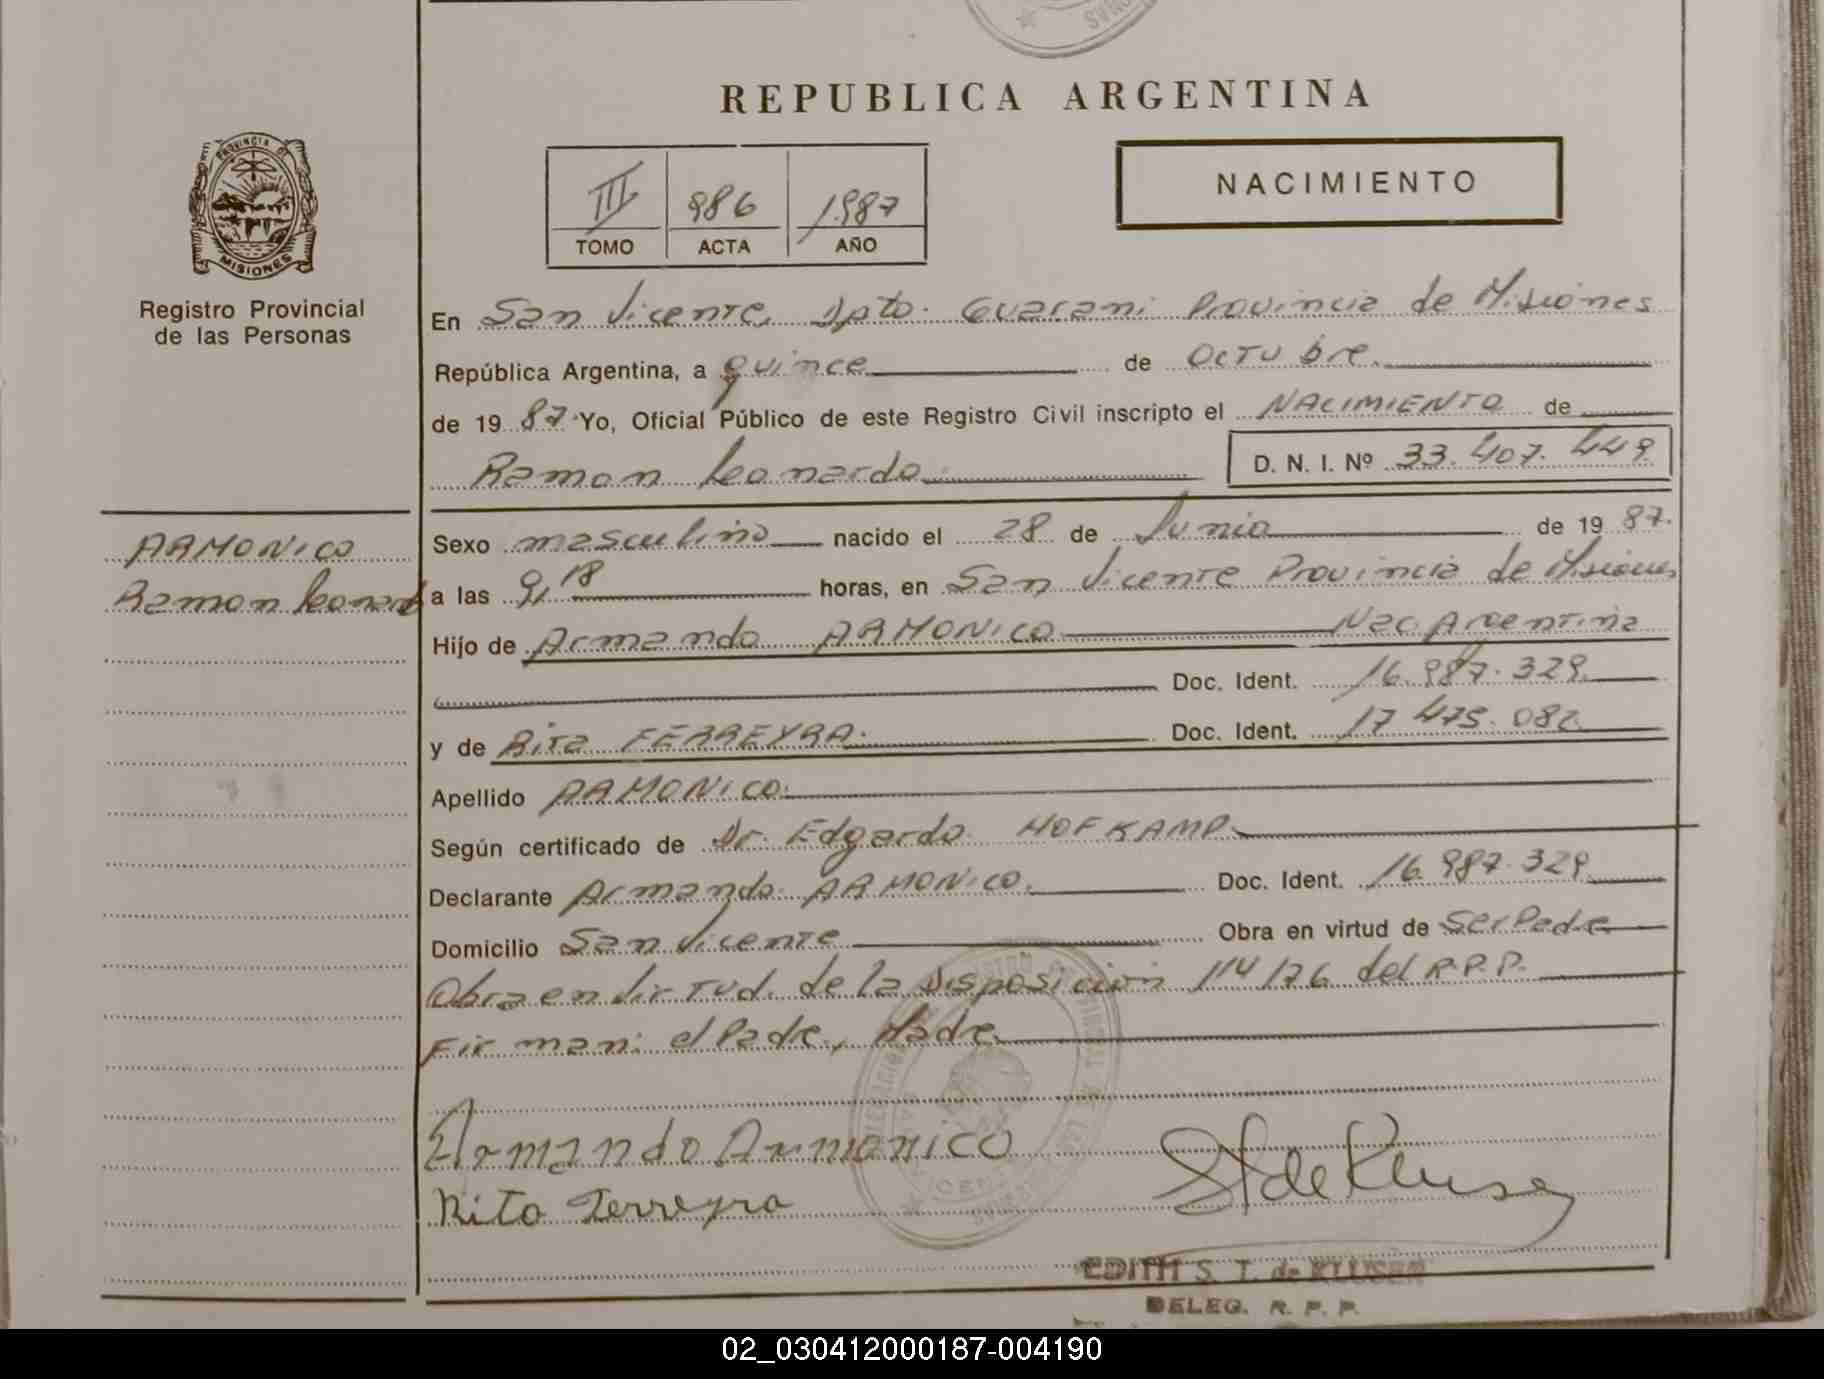 REPUBLICA ARGENTINA
PROVINCIA DE
MISIONES
Registro Provincial
de las Personas
III 986 1987
TOMO ACTA AÑO
NACIMIENTO
En San Vicente, Dpto. Guarani Provincia de Misiones
República Argentina, a quince de Octubre.
de 19 87 Yo, Oficial Público de este Registro Civil inscripto el NACIMIENTO de
Ramon Leonardo. D. N. I. Nº 33.407.449
ARMONICO
Ramon Leonardo
Sexo masculino nacido el 28 de Junio de 19 87.
a las 9,18 horas, en San Vicente Provincia de Misiones
Hijo de Armando ARMONICO Nac. Argentina
Doc. Ident. 16.987.329.
y de Rita FERREYRA. Doc. Ident. 17.475.082
Apellido ARMONICO.
Según certificado de Dr. Edgardo HOFKAMP.
Declarante Armando ARMONICO. Doc. Ident. 16.987.329
Domicilio San Vicente Obra en virtud de Ser Padre
Obra en Virtud. de la Disposición 114/76 del R.P.P.
Firman: el Padre, Madre.
Armando Armonico
Rita Ferreyra
S T de Kluser
EDITH S. T. de KLUSER
DELEG. R. P. P.
02_030412000187-004190